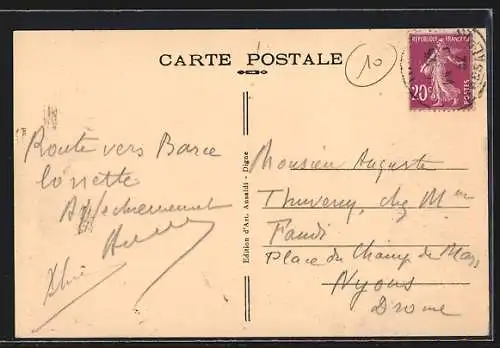 CARTE POSTALE
10
REPUBLIQUE FRANÇAISE
20c
POSTES
Route vers Barce
lonette
Affectueusement
Edition d'Art. Ansaldi - Digne
Monsieur Auguste
Thuveny, chez Mme
Place du Champ de Mars
Nyons
Drome